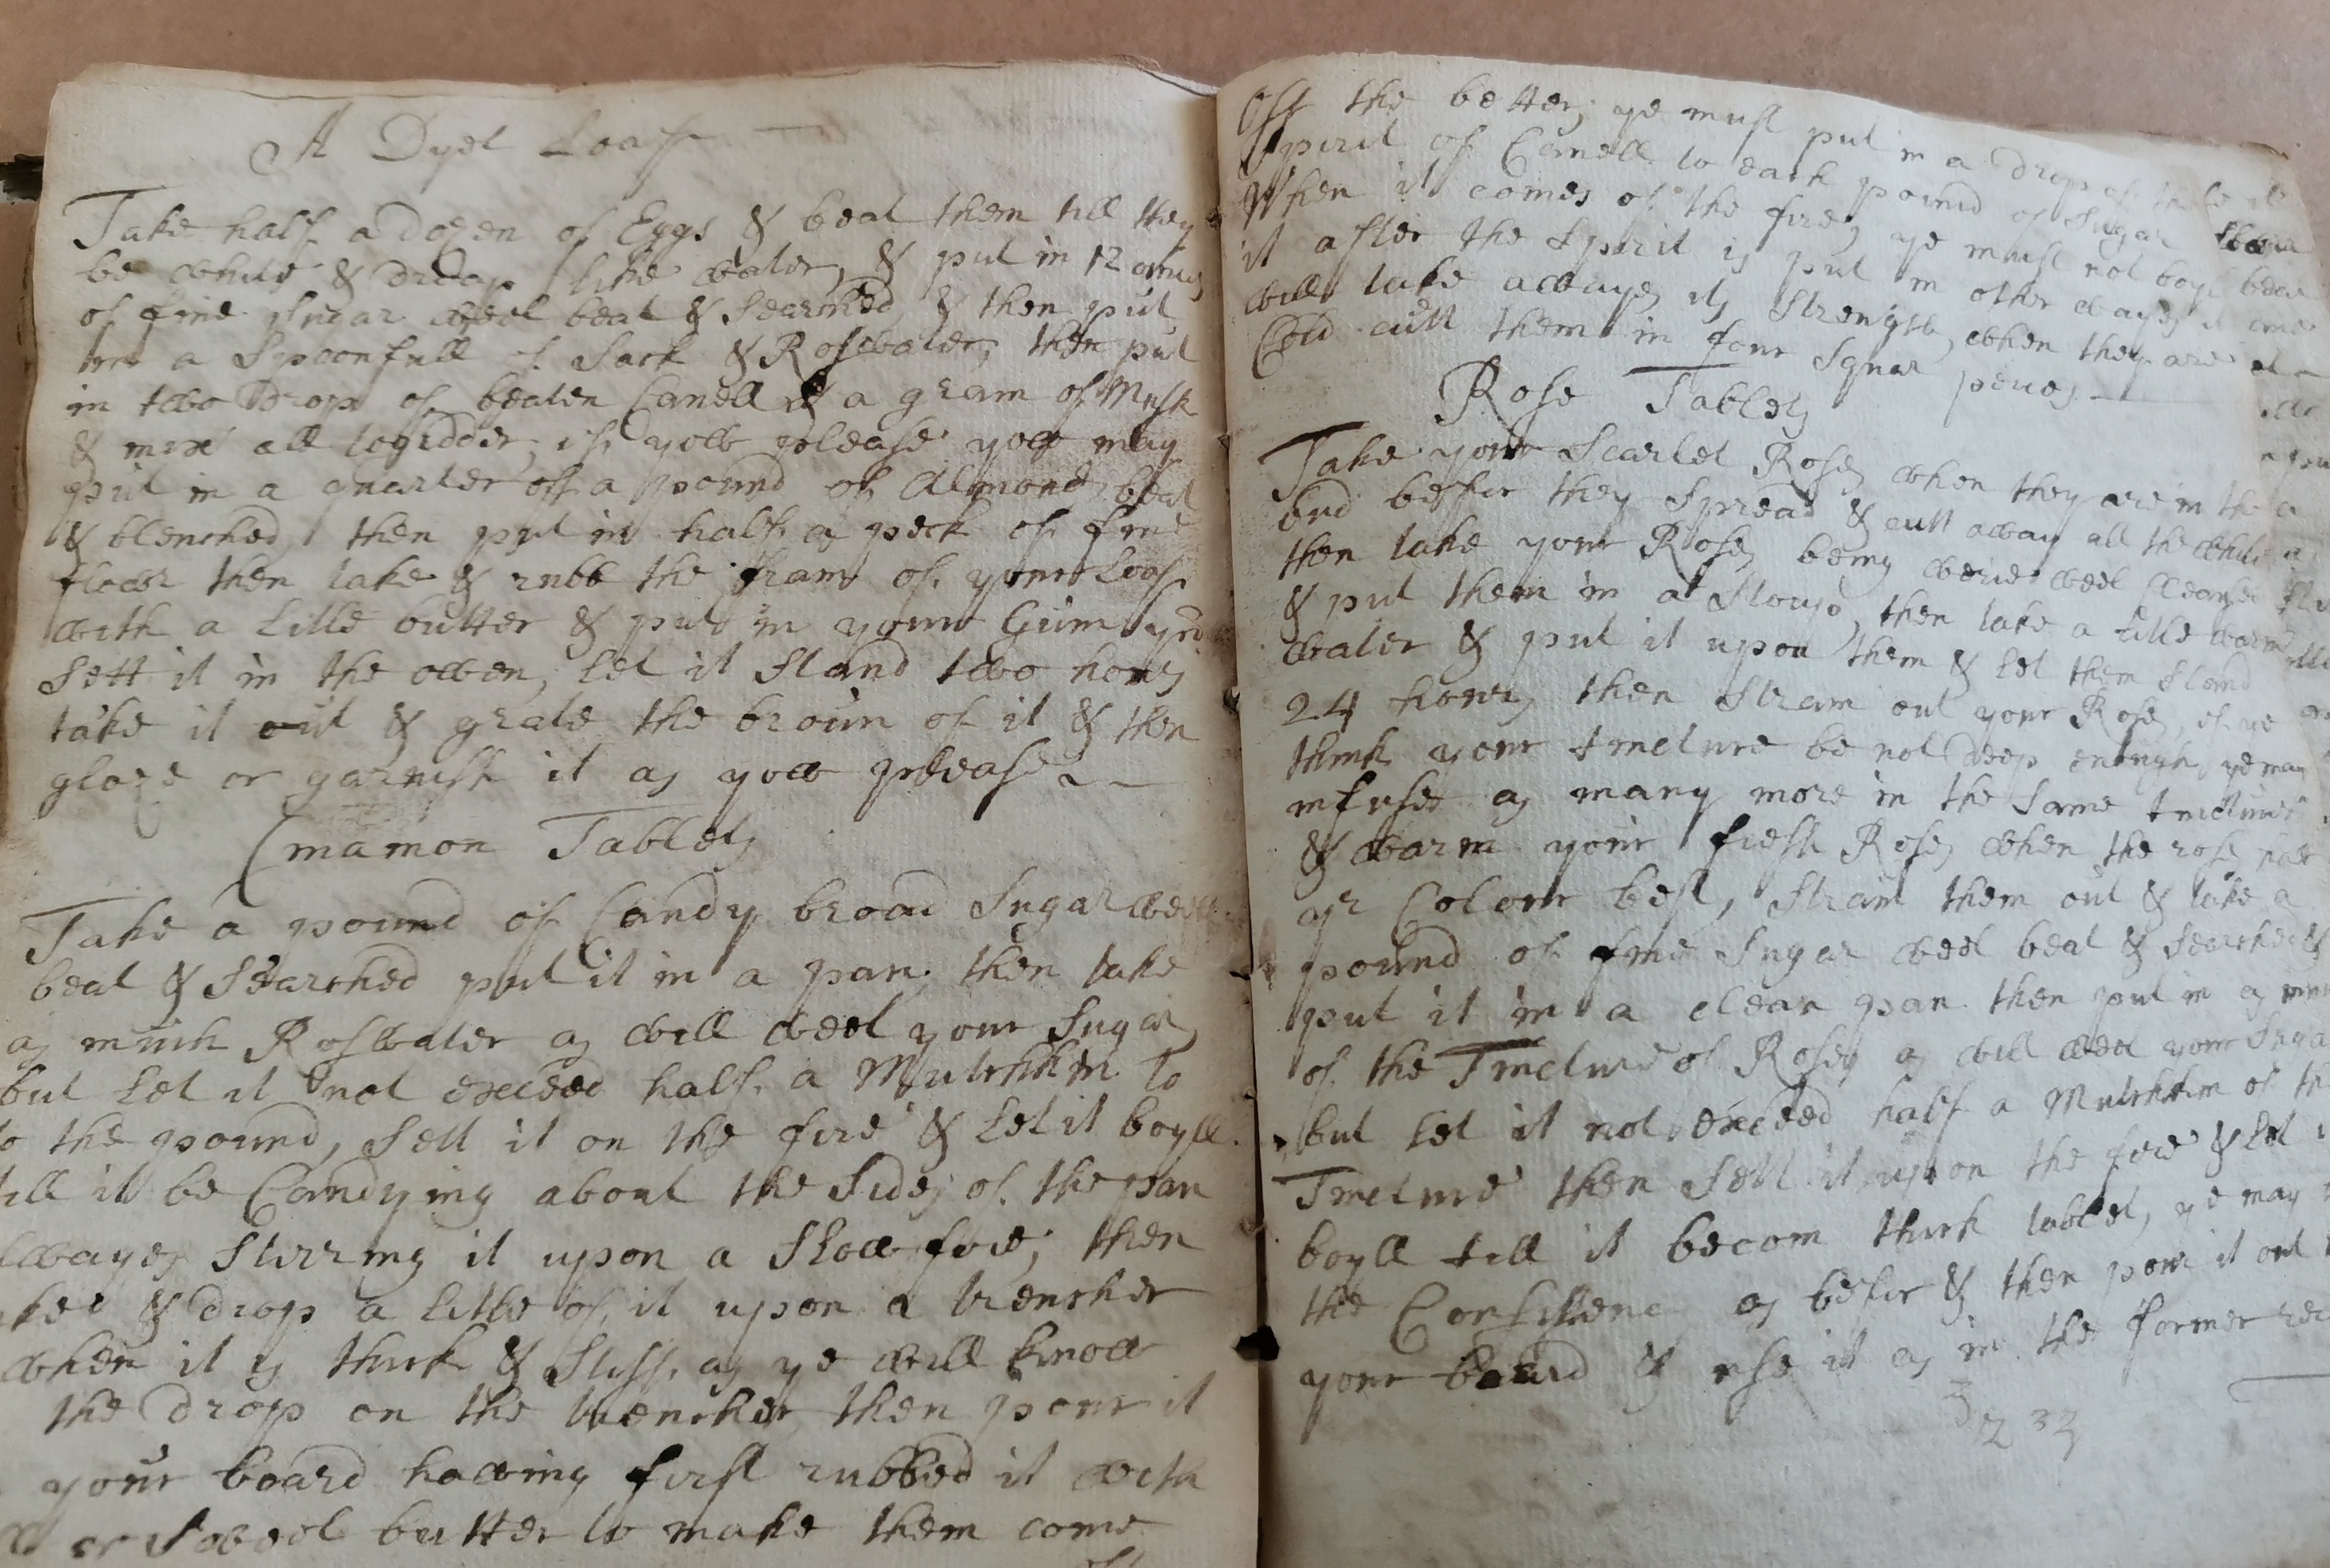 A Dyet Loaf
Take half a dozen of Eggs & beat them till they
be white & drop like water, & put in 12 unces
of fine sugar weel beat & Searched & then put
in a Spoonfull of Sack & Rosewater, then put
in two drop of beaten Canell & a grain of Musk
& mix all togidder, if yow please yow may
put in a quarter off a pound of Almonds beat
& blenched, then put in half a peck of fine
flowr then take & rubb the fram of your Loaf
with a litle butter & put in your
Sett it in the owen, let it stand two hours
take it out & grate the broun of it & then
gloze or garnish it as yow please
Cinamon Tablets
Take a pound of Candy broad Sugar weell
beat & Searched put it in a pan, then take
as much Roswater as will weet your Sugar
but Let it not exceed half a Mutchkin to
to the pound, Sett it on the fire & Let it boyll
till it be Candying about the Sides of the pan
allwayes Stirring it upon a Slow fire, then
take & drop a litle of it upon a trencher
when it is thick & Stiff as ye will know
the drop on the trencher, then pour it
your board hawing first rubbed it with
or Sweet butter to make them come
Off the better, ye must put in a drop of
Spirit of Canell to each pound of Sugar
When it comes of the fire, ye must not boyl
it after the Spirit is put in other wayes it
will take awaye its Strength, when they are
Cold cutt them in four Squar peices
Rose Tablets
Take your Scarlet Roses when they are in the
bud beffor they Spread & cutt away all the white
then take your Roses being werie weel Cleansed
& put them in a Stoup, then take a litle warm
water & put it upon them & Let them Stand
24 hours then Strain out your Roses, if ye
think your tincture be not deep enough, ye may
infuse as many more in the Same tincture
& warm your fresh Roses when the roses
yr Colour best, Strain them out & take a
pound of fine Sugar weel beat & Searched &
put it in a clean pan then put in as
of the Tincture of Roses as will weet your Sugar
but Let it not exceed half a Mutchkin of the
Tincture then Sett it upon the fire & Let it
boyll till it becom thick tablet, ye may
the Consistence as beffor & then pour it out
your board & use it as in the former